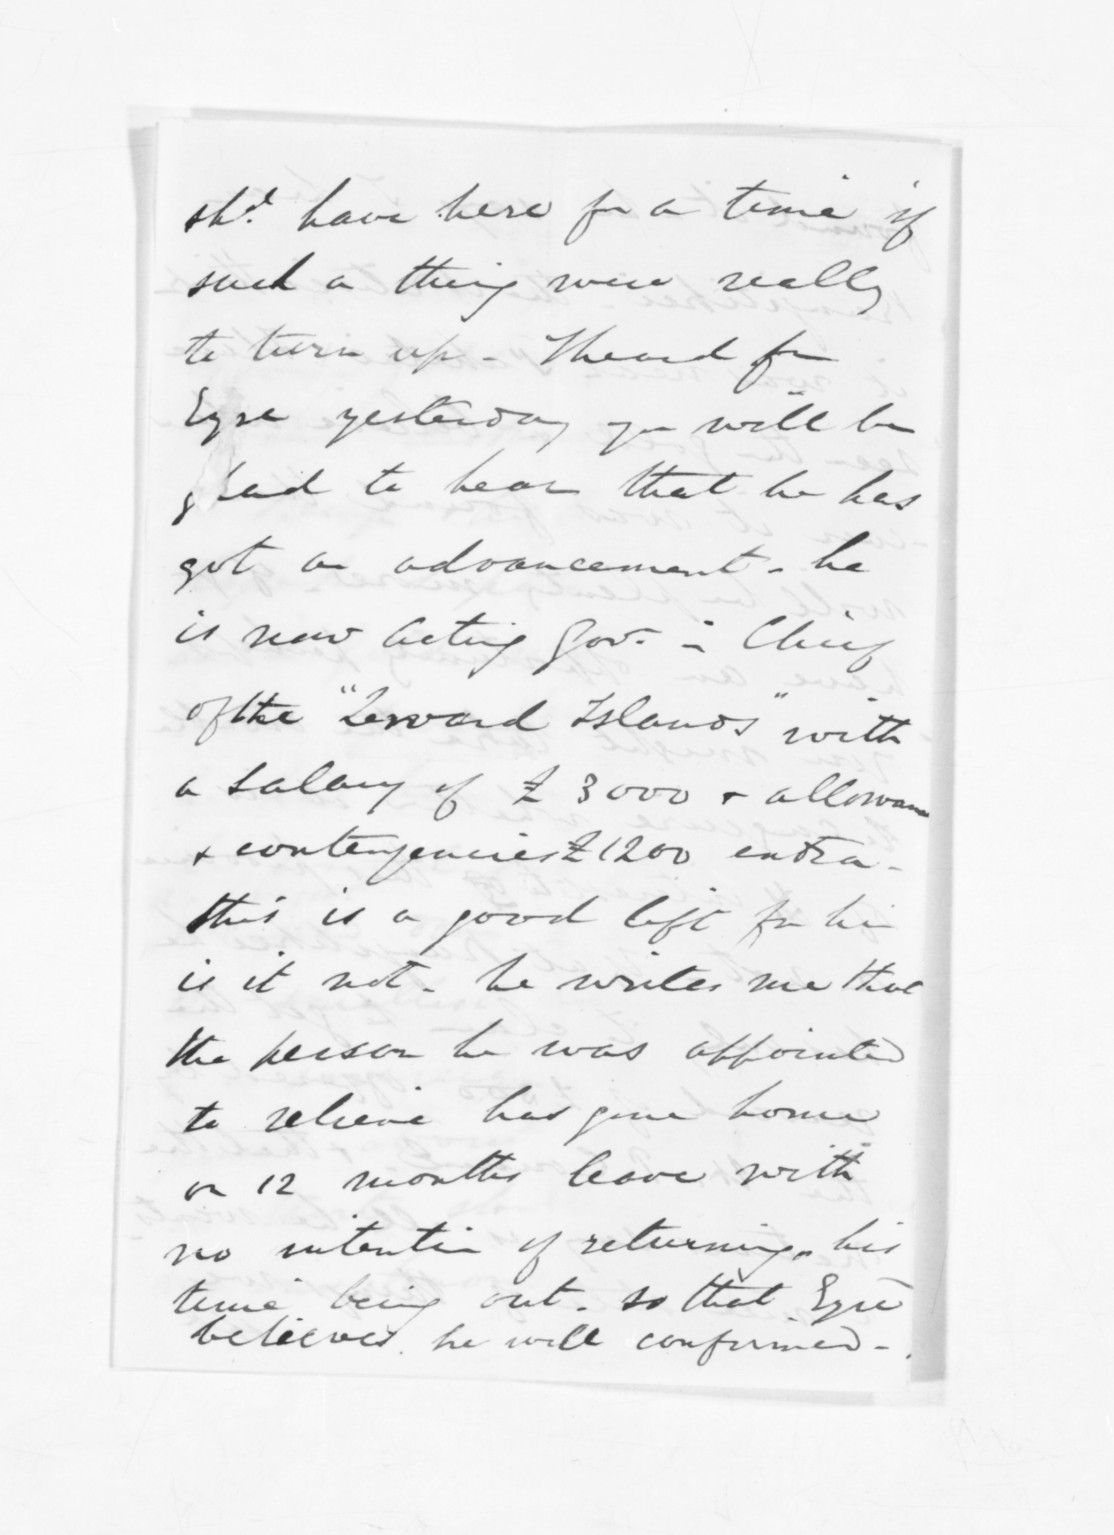 shd. have here for a time if
such a thing were really
to turn up - I heard fm
Eyre yesterday you will be
glad to hear that he has
got an advancement - he
is now Acting Govr. in Chief
of the "Leeward Islands" with
a salary of £3000 + allowance
+ contengencies £1200 extra -
this is a good lift for him
is it not - he writes me that
the person he was appointed
to relieve has gone home
on 12 months leave with
no intention of returning, his
time being out - so that Eyre
believes he will confirmed -